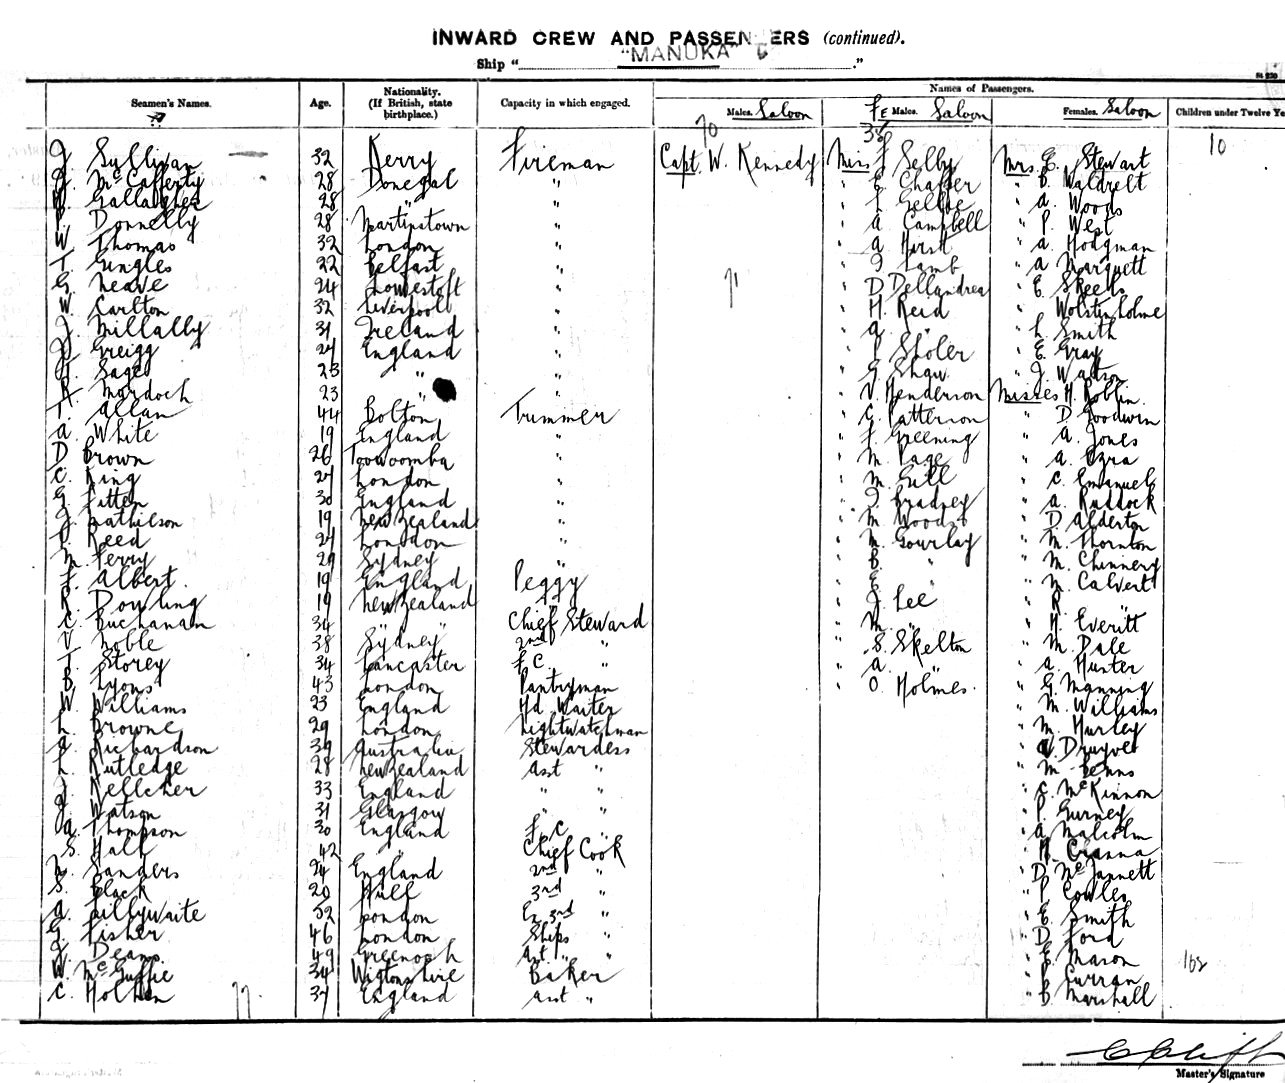 INWARD CREW AND PASSENGERS (continued).
Ship " "MANUKA" "
Seamen's Names. Age. Nationality. (If British, state birthplace.) Capacity in which engaged. Names of Passengers.
Males. Saloon FeMales. Saloon Females. Saloon Children under Twelve Ye
70 38 10
J Sullivan 32 Kerry Fireman Capt. W. Kennedy Mrs F Selby Mrs. E. Stewart
J. McCafferty 28 Donegal " " E. Chaffer " B. Waldrelt
Gallagher 28 " " " Gellbe " A. Woods
P. Donnelly 28 Martinstown " " A Campbell " P. West
W Thomas 32 London " " A Hirst " A. Hodgman
T. Gingles 22 Belfast " " J Lamb " A Marquett
G. Neave 24 Lowestoft " 71 " D Dellandrea " E. Skeels
W. Carlton 32 Liverpool " " H. Reid " Wolstenholme
J. Millally 31 Ireland " " A. " " L. Smith
J. Greigg 24 England " " P Sholer " E. Gray
Sage 23 " " " G Shaw " J Watson
Murdoch 23 " " " V Henderson Misses H. Roblin
T. Allan 44 Bolton Trimmer " G. Patterson " D. Goodwin
A. White 19 England " " F Greening " A. Jones
D Brown 26 Toowoomba " " M. Page " A. Ezra
C. King 24 London " " M. Gill " C. Emanuel
G Fitten 30 England " " J Bradney " A. Ruddock
J. Mathieson 19 New Zealand " " M Woods " D Alderton
Reed 24 London " " M. Gourlay " M. Thornton
M Ferry 29 Sydney " " B. " " M. Chinnery
F. Albert. 19 England Peggy " E " " M Calvert
R. Dowling 19 New Zealand " " J. Lee " R. "
C. Buchanan 34 " Chief Steward " M. " " H. Everitt
V. Noble 38 Sydney 2nd " " S. Skelton " M. Dale
T. Storey 34 Lancaster F C. " " A. " " A. Hunter
B Lyons 43 London Pantryman " O. Holmes. " G. Manning
W Williams 23 England Hd Waiter " M. Williams
L. Browne 29 London Nightwatchman " M. Hurley
A. Richardson 39 Australia Stewardess " Druyve
L. Rutledge 28 New Zealand Asst " " M. Benns
J. Kelleher 33 England " " " C. McKinnon
J. Watson 31 Glasgow " " " P. Gurney
A. Thompson 30 England F. C " " A. Malcolm
S. Hall 42 " Chief Cook " H. Cranna
Sanders 24 England 2nd " " D. McJannett
S. Black 20 Hull 3rd " " P Cowles
A. Lillywaite 52 London Ex 3rd " " E Smith
G. Fisher 46 London Ships " " D Ford
J Deans 49 Greenock Ast " " " E Mason 102
W. McGuffie 34 Wigtonshire Baker " P Curran
C. Holben 77. 34 England Asst " " B. Marshall
Master's Signature